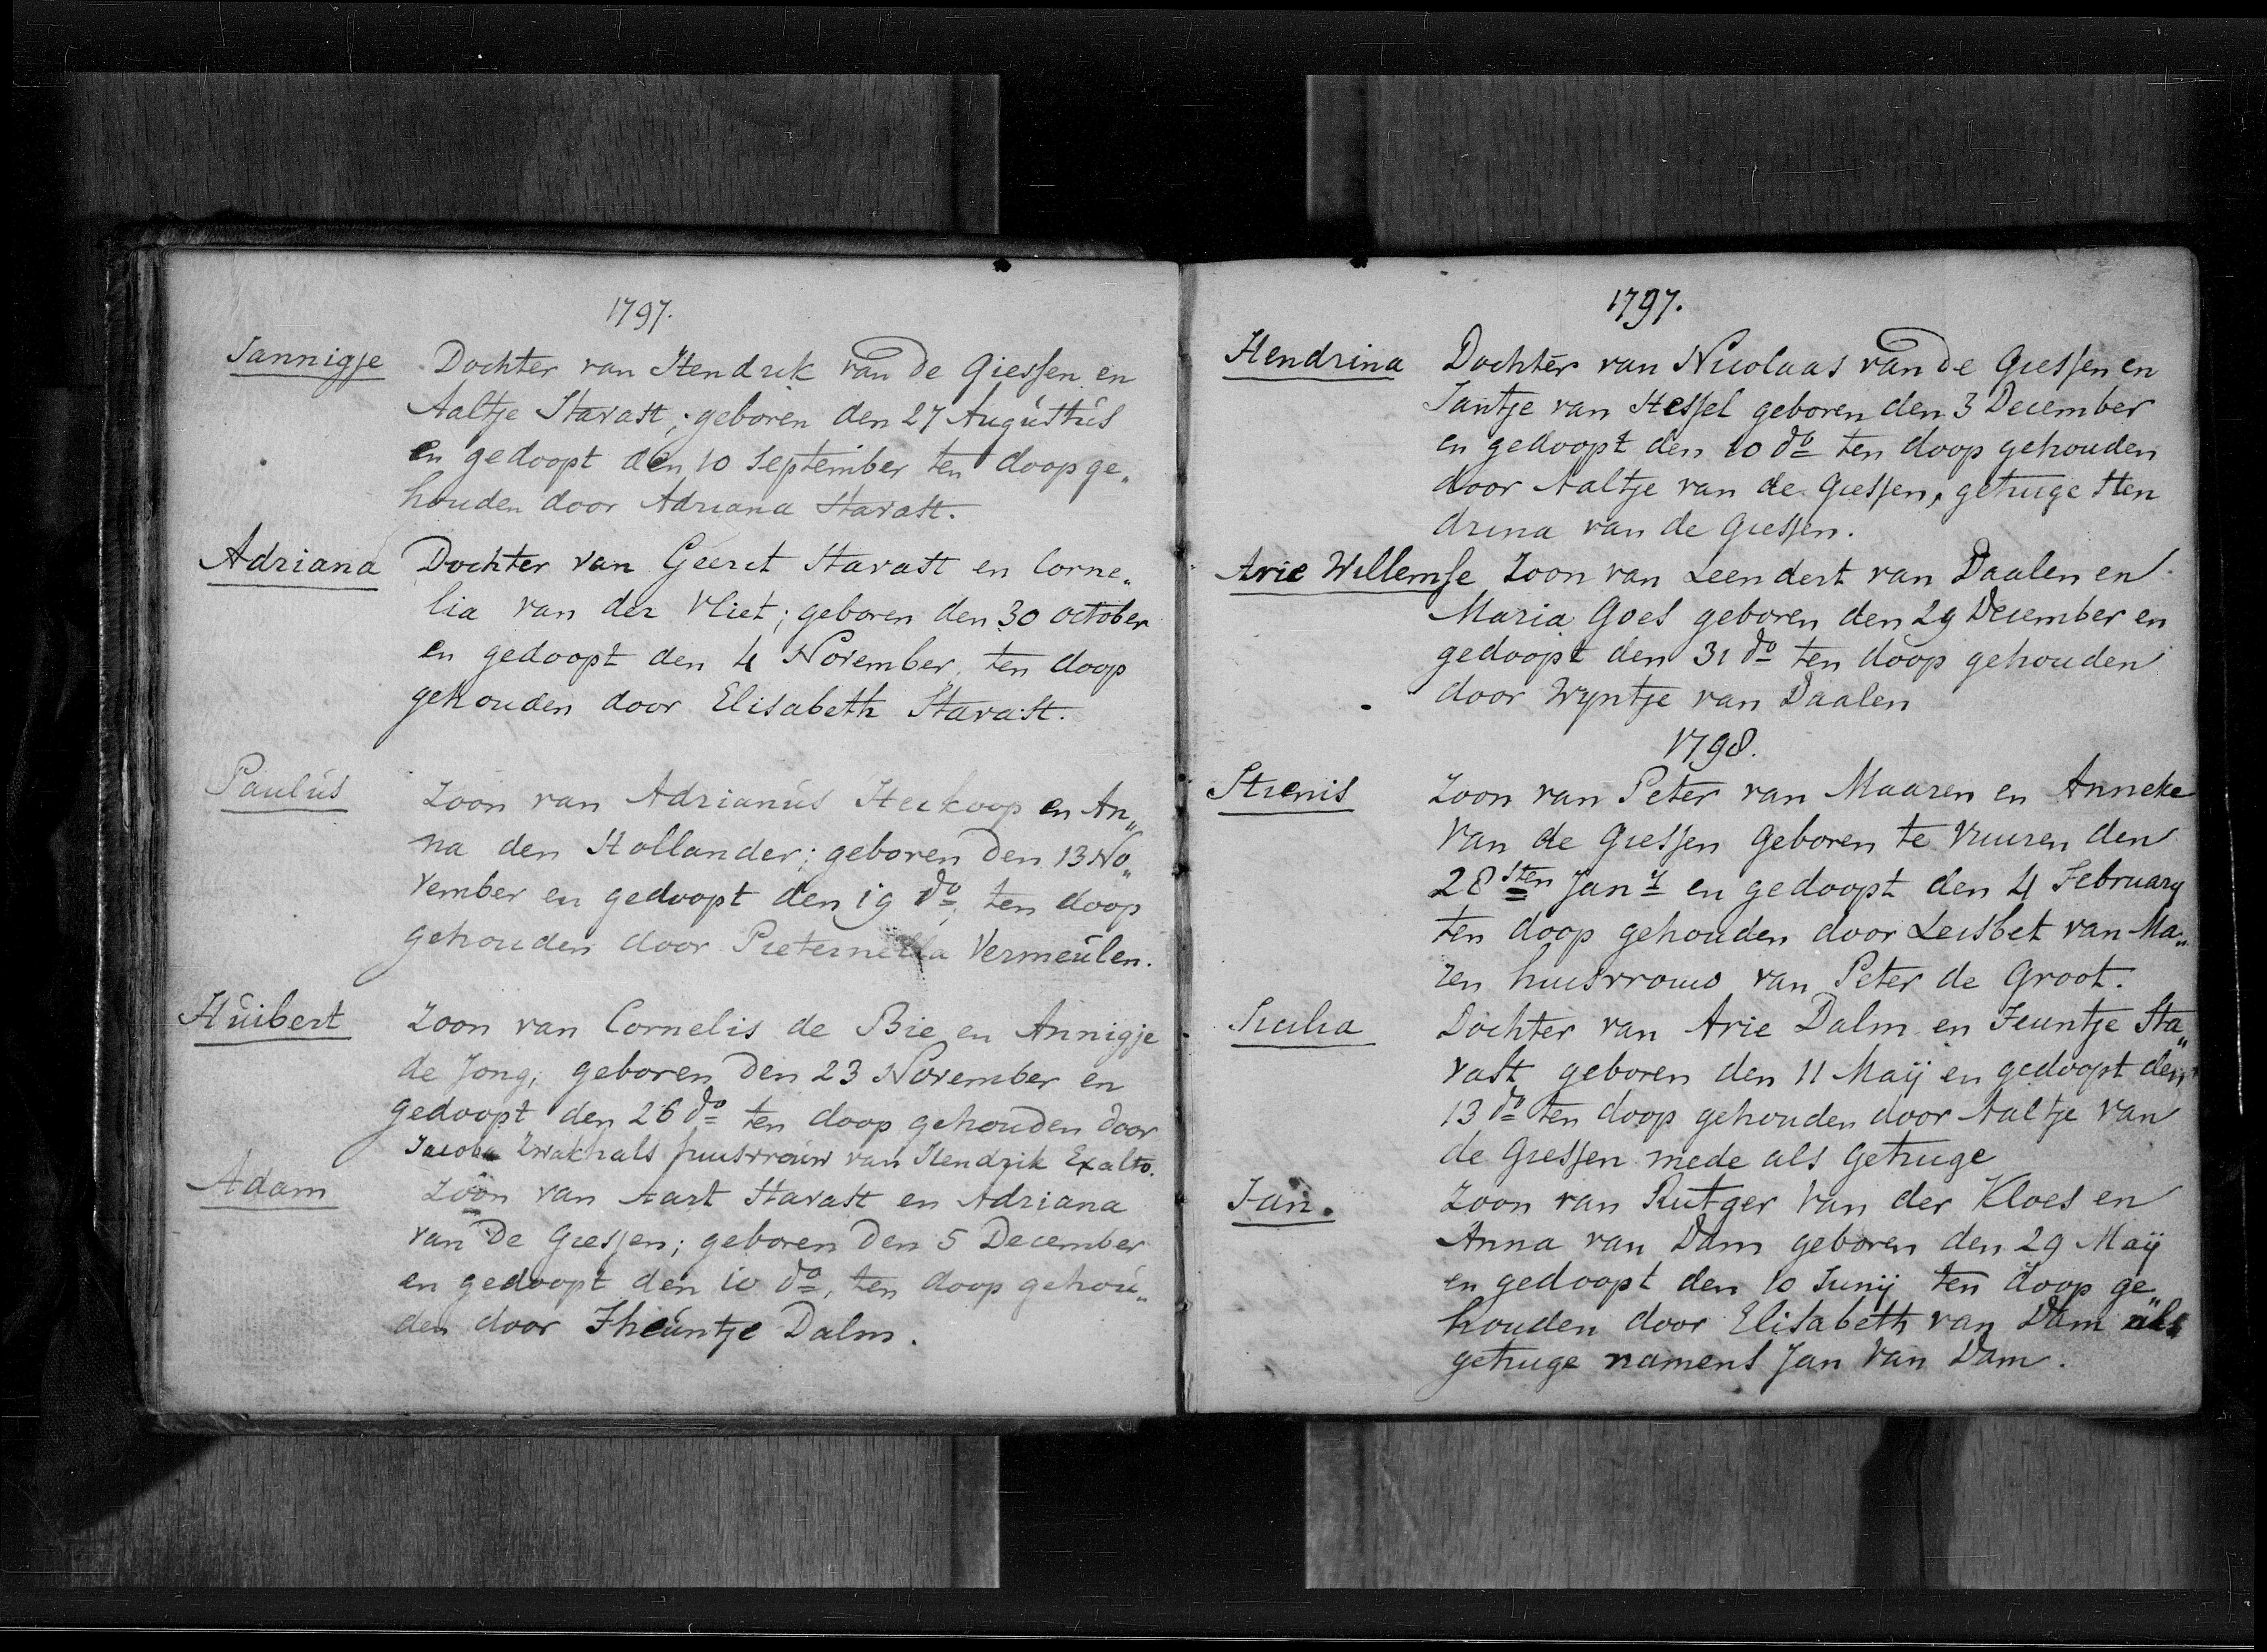 1797.
Jannigje Dochter van Hendrik van de Giessen en
Aaltje Stavast; geboren den 27 Augústús
en gedoopt den 10 September ten doop ge„
houden door Adriana Stavast.
Adriana Dochter van Geeret Stavast en Corne„
lia van der Vliet; geboren den 30 october
en gedoopt den 4 November, ten doop
gehouden door Elisabeth Stavast.
Paulús Zoon van Adrianús Heikoop en An„
na den Hollander; geboren den 13 No„
vember en gedoopt den 19 do, ten doop
gehouden door Pieternella Vermeúlen.
Húibert Zoon van Cornelis de Bie en Annigje
de Jong; geboren den 23 November en
gedoopt den 26 do ten doop gehouden door
Jacoba Zwakhals huisvrouw van Hendrik Exalto.
Adam Zoon van Aart Stavast en Adriana
van de Giessen; geboren den 5 December
en gedoopt den 10 do, ten doop gehoú„
den door Theúntje Dalm.
1797.
Hendrina Dochter van Nicolaas van de Giessen en
Jantje van Hessel geboren den 3 December
en gedoopt den 10 do ten doop gehouden
door Aaltje van de Giessen, getuige Hen
drina van de Giessen.
Arie Willemse Zoon van Leendert van Daalen en
Maria Goes geboren den 29 December en
gedoopt den 31 do ten doop gehouden
door Wyntje van Daalen
1798.
Zoon van Peter van Maaren en Anneke
van de Giessen geboren te Vuuren den
28sten Jany en gedoopt den 4 February
ten doop gehouden door Leisbet van Ma„
ren huisvrouw van Peter de Groot.
Dochter van Arie Dalm en Teuntje Sta„
vast geboren den 11 Maÿ en gedoopt den
13 do ten doop gehouden door Aaltje van
de Giessen mede als Getuige
Jan. Zoon van Rutger van der Kloes en
Anna van Dam geboren den 29 Maÿ
en gedoopt den 10 Junij ten doop ge„
houden door Elisabeth van Dam als
getuige namens Jan van Dam.